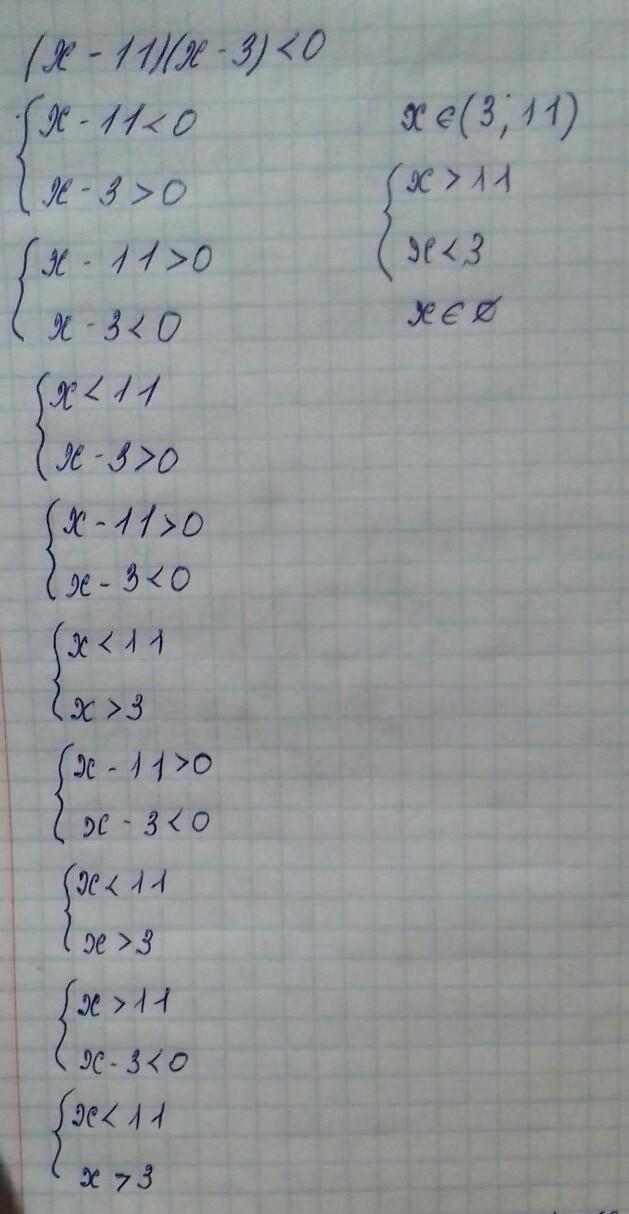 (x - 11)(x - 3) < 0
{ x - 11 < 0
x - 3 > 0
{ x - 11 > 0
x - 3 < 0
{ x < 11
x - 3 > 0
{ x - 11 > 0
x - 3 < 0
{ x < 11
x > 3
{ x - 11 > 0
x - 3 < 0
{ x < 11
x > 3
{ x > 11
x - 3 < 0
{ x < 11
x > 3
x ∈ (3; 11)
{ x > 11
x < 3
x ∈ ∅